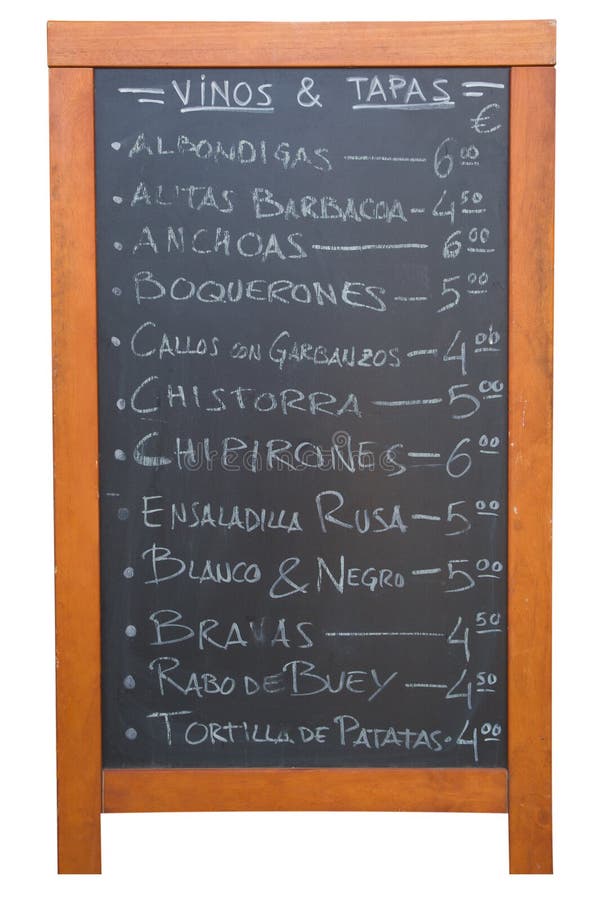 = VINOS & TAPAS =
€
• ALBONDIGAS — 6.00
• ALITAS BARBACOA - 4.50
• ANCHOAS — 6.00
• BOQUERONES — 5.00
• CALLOS CON GARBANZOS — 4.00
• CHISTORRA — 5.00
• CHIPIRONES — 6.00
ENSALADILLA RUSA — 5.00
• BLANCO & NEGRO — 5.00
• BRAVAS — 4.50
• RABO DE BUEY — 4.50
• TORTILLA DE PATATAS · 4.00
dreamstime.com